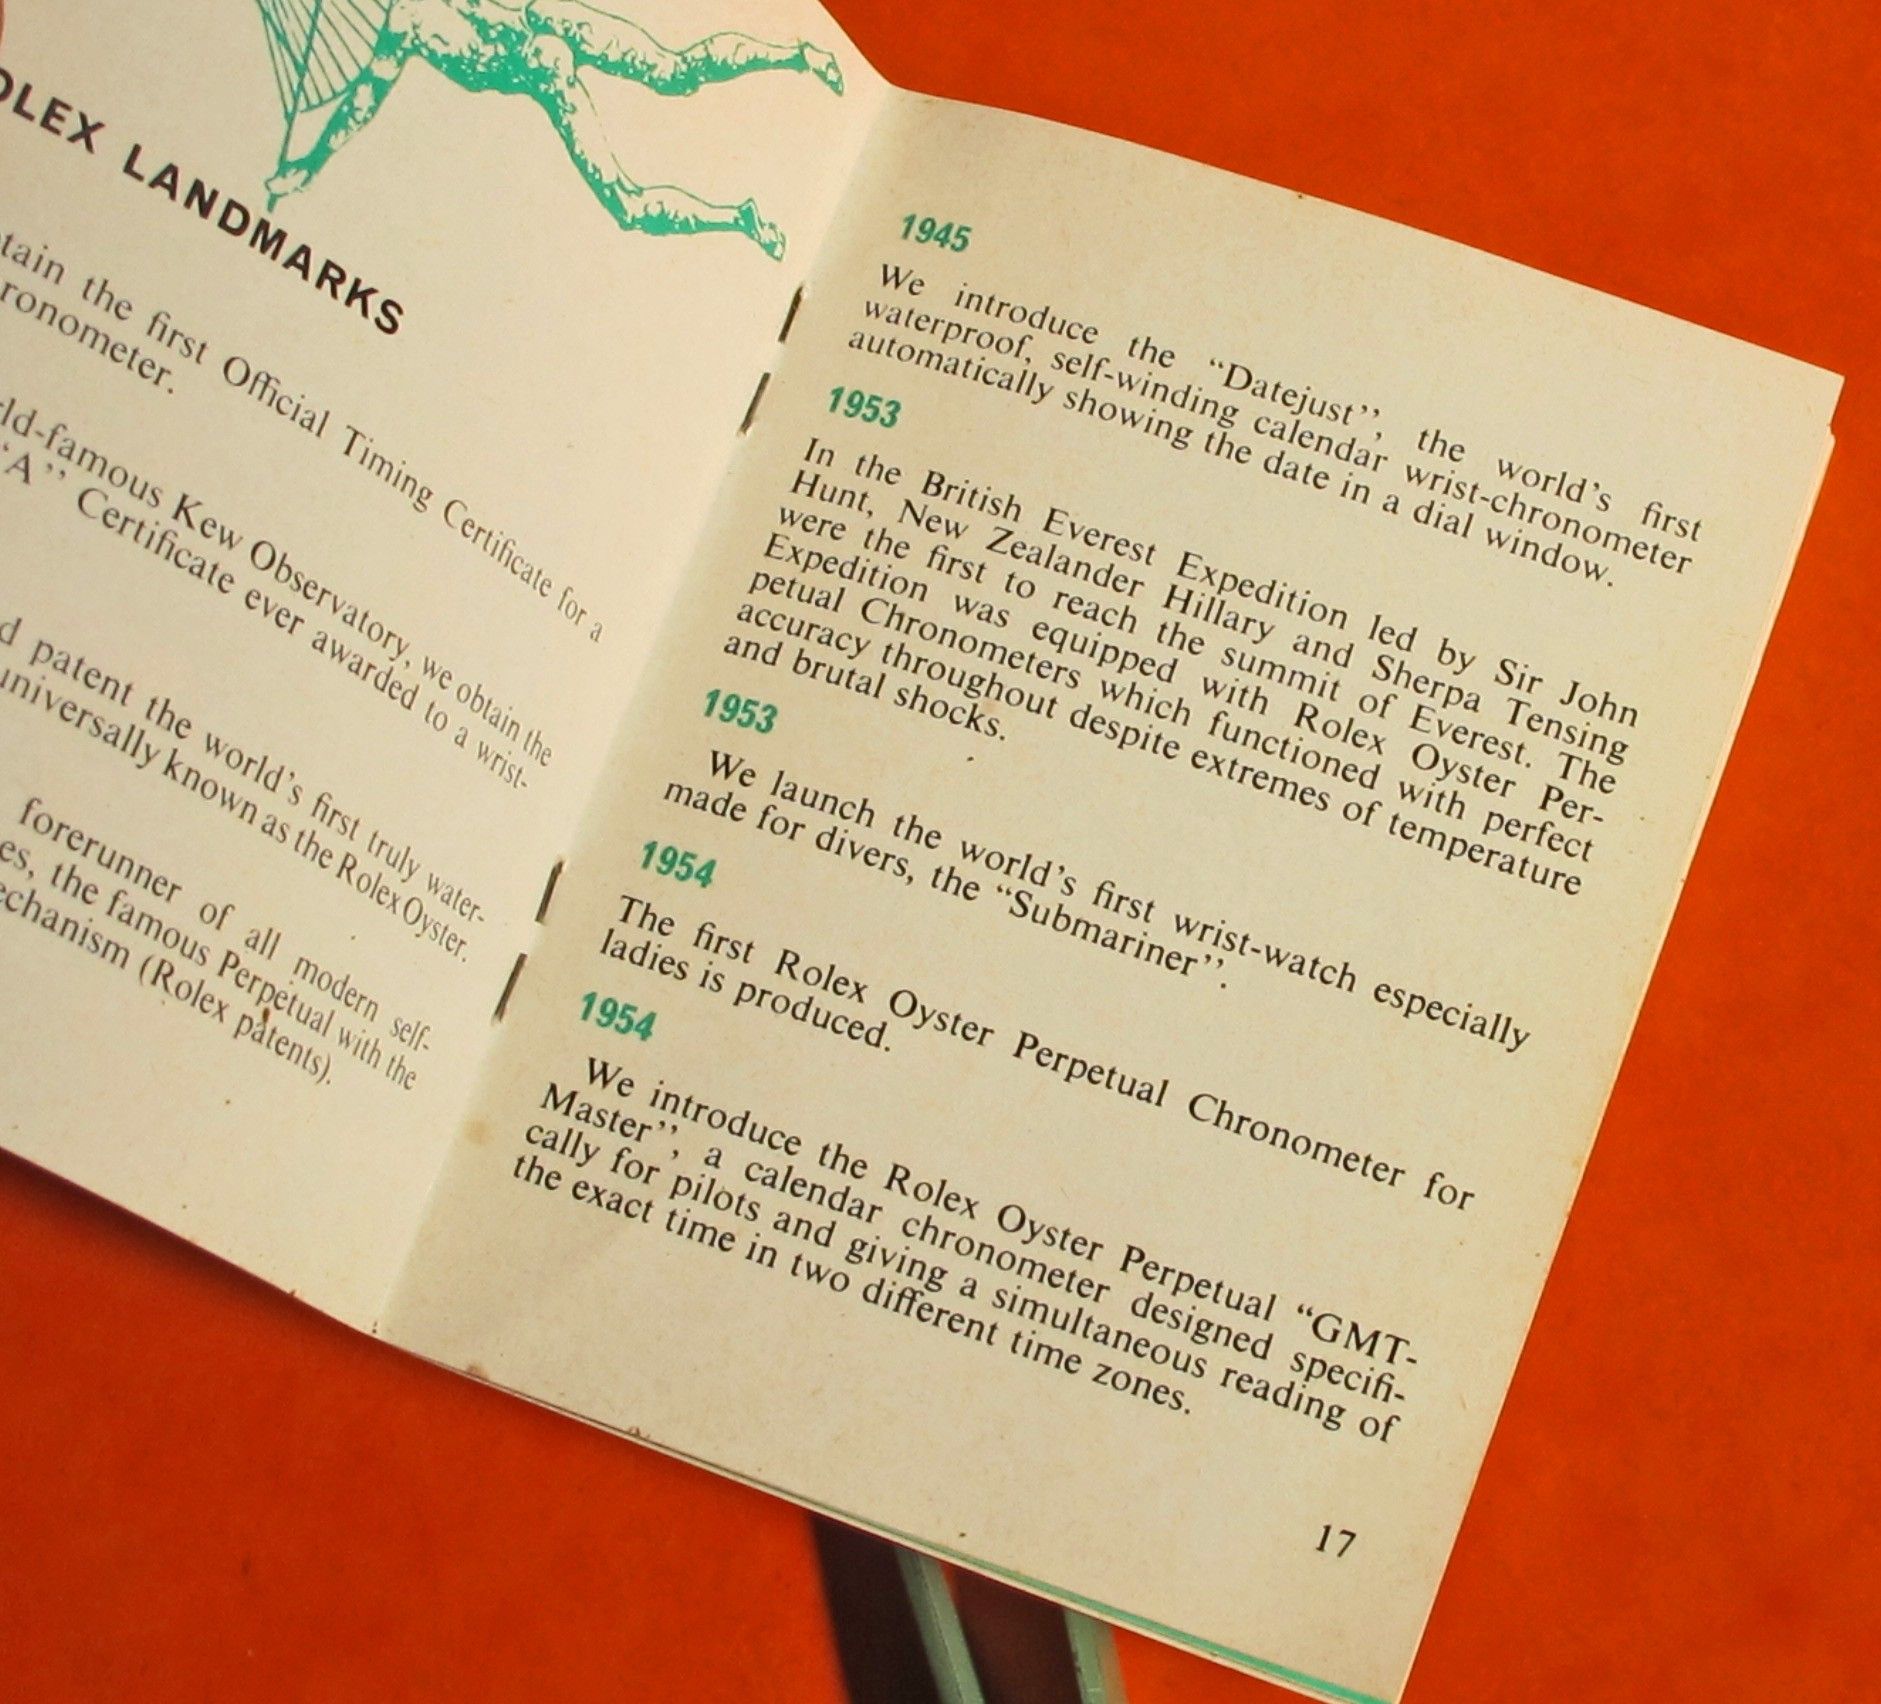 LANDMARKS
the first Official Timing Certificate for a
Kew Observatory, we obtain the
Certificate ever awarded to a wrist-
patent the world's first truly water-
universally known as the Rolex Oyster.
forerunner of all modern self-
the famous Perpetual with the
(Rolex patents).
1945
We introduce the “Datejust”, the world's first
waterproof, self-winding calendar wrist-chronometer
automatically showing the date in a dial window.
1953
In the British Everest Expedition led by Sir John
Hunt, New Zealander Hillary and Sherpa Tensing
were the first to reach the summit of Everest. The
Expedition was equipped with Rolex Oyster Per-
petual Chronometers which functioned with perfect
accuracy throughout despite extremes of temperature
and brutal shocks.
1953
We launch the world's first wrist-watch especially
made for divers, the “Submariner”.
1954
The first Rolex Oyster Perpetual Chronometer for
ladies is produced.
1954
We introduce the Rolex Oyster Perpetual “GMT-
Master”, a calendar chronometer designed specifi-
cally for pilots and giving a simultaneous reading of
the exact time in two different time zones.
17